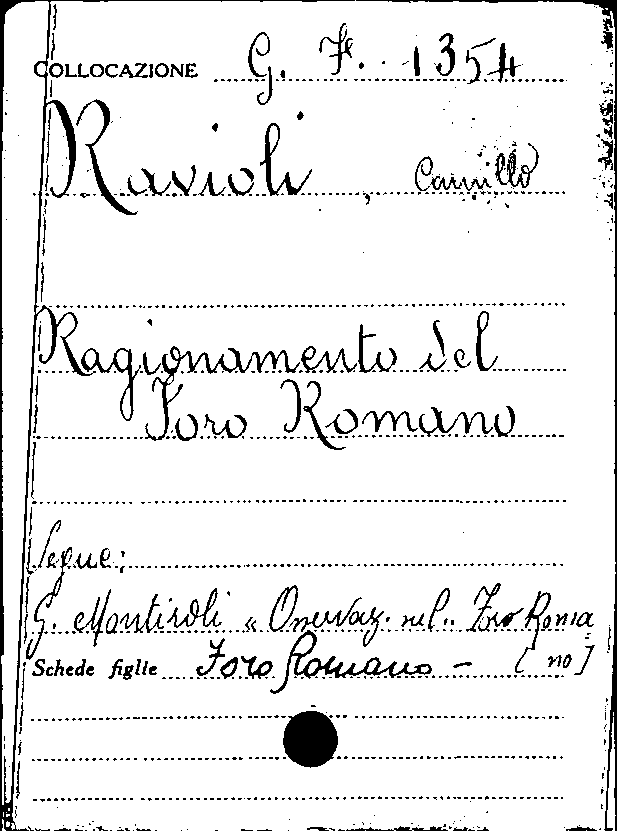 COLLOCAZIONE G. F. 1354
Ravioli, Camillo
Ragionamento del
Foro Romano
Segue:
G. Montiroli « Osservaz. nel.. Foro Roma
Schede figlie Foro Romano - [no]